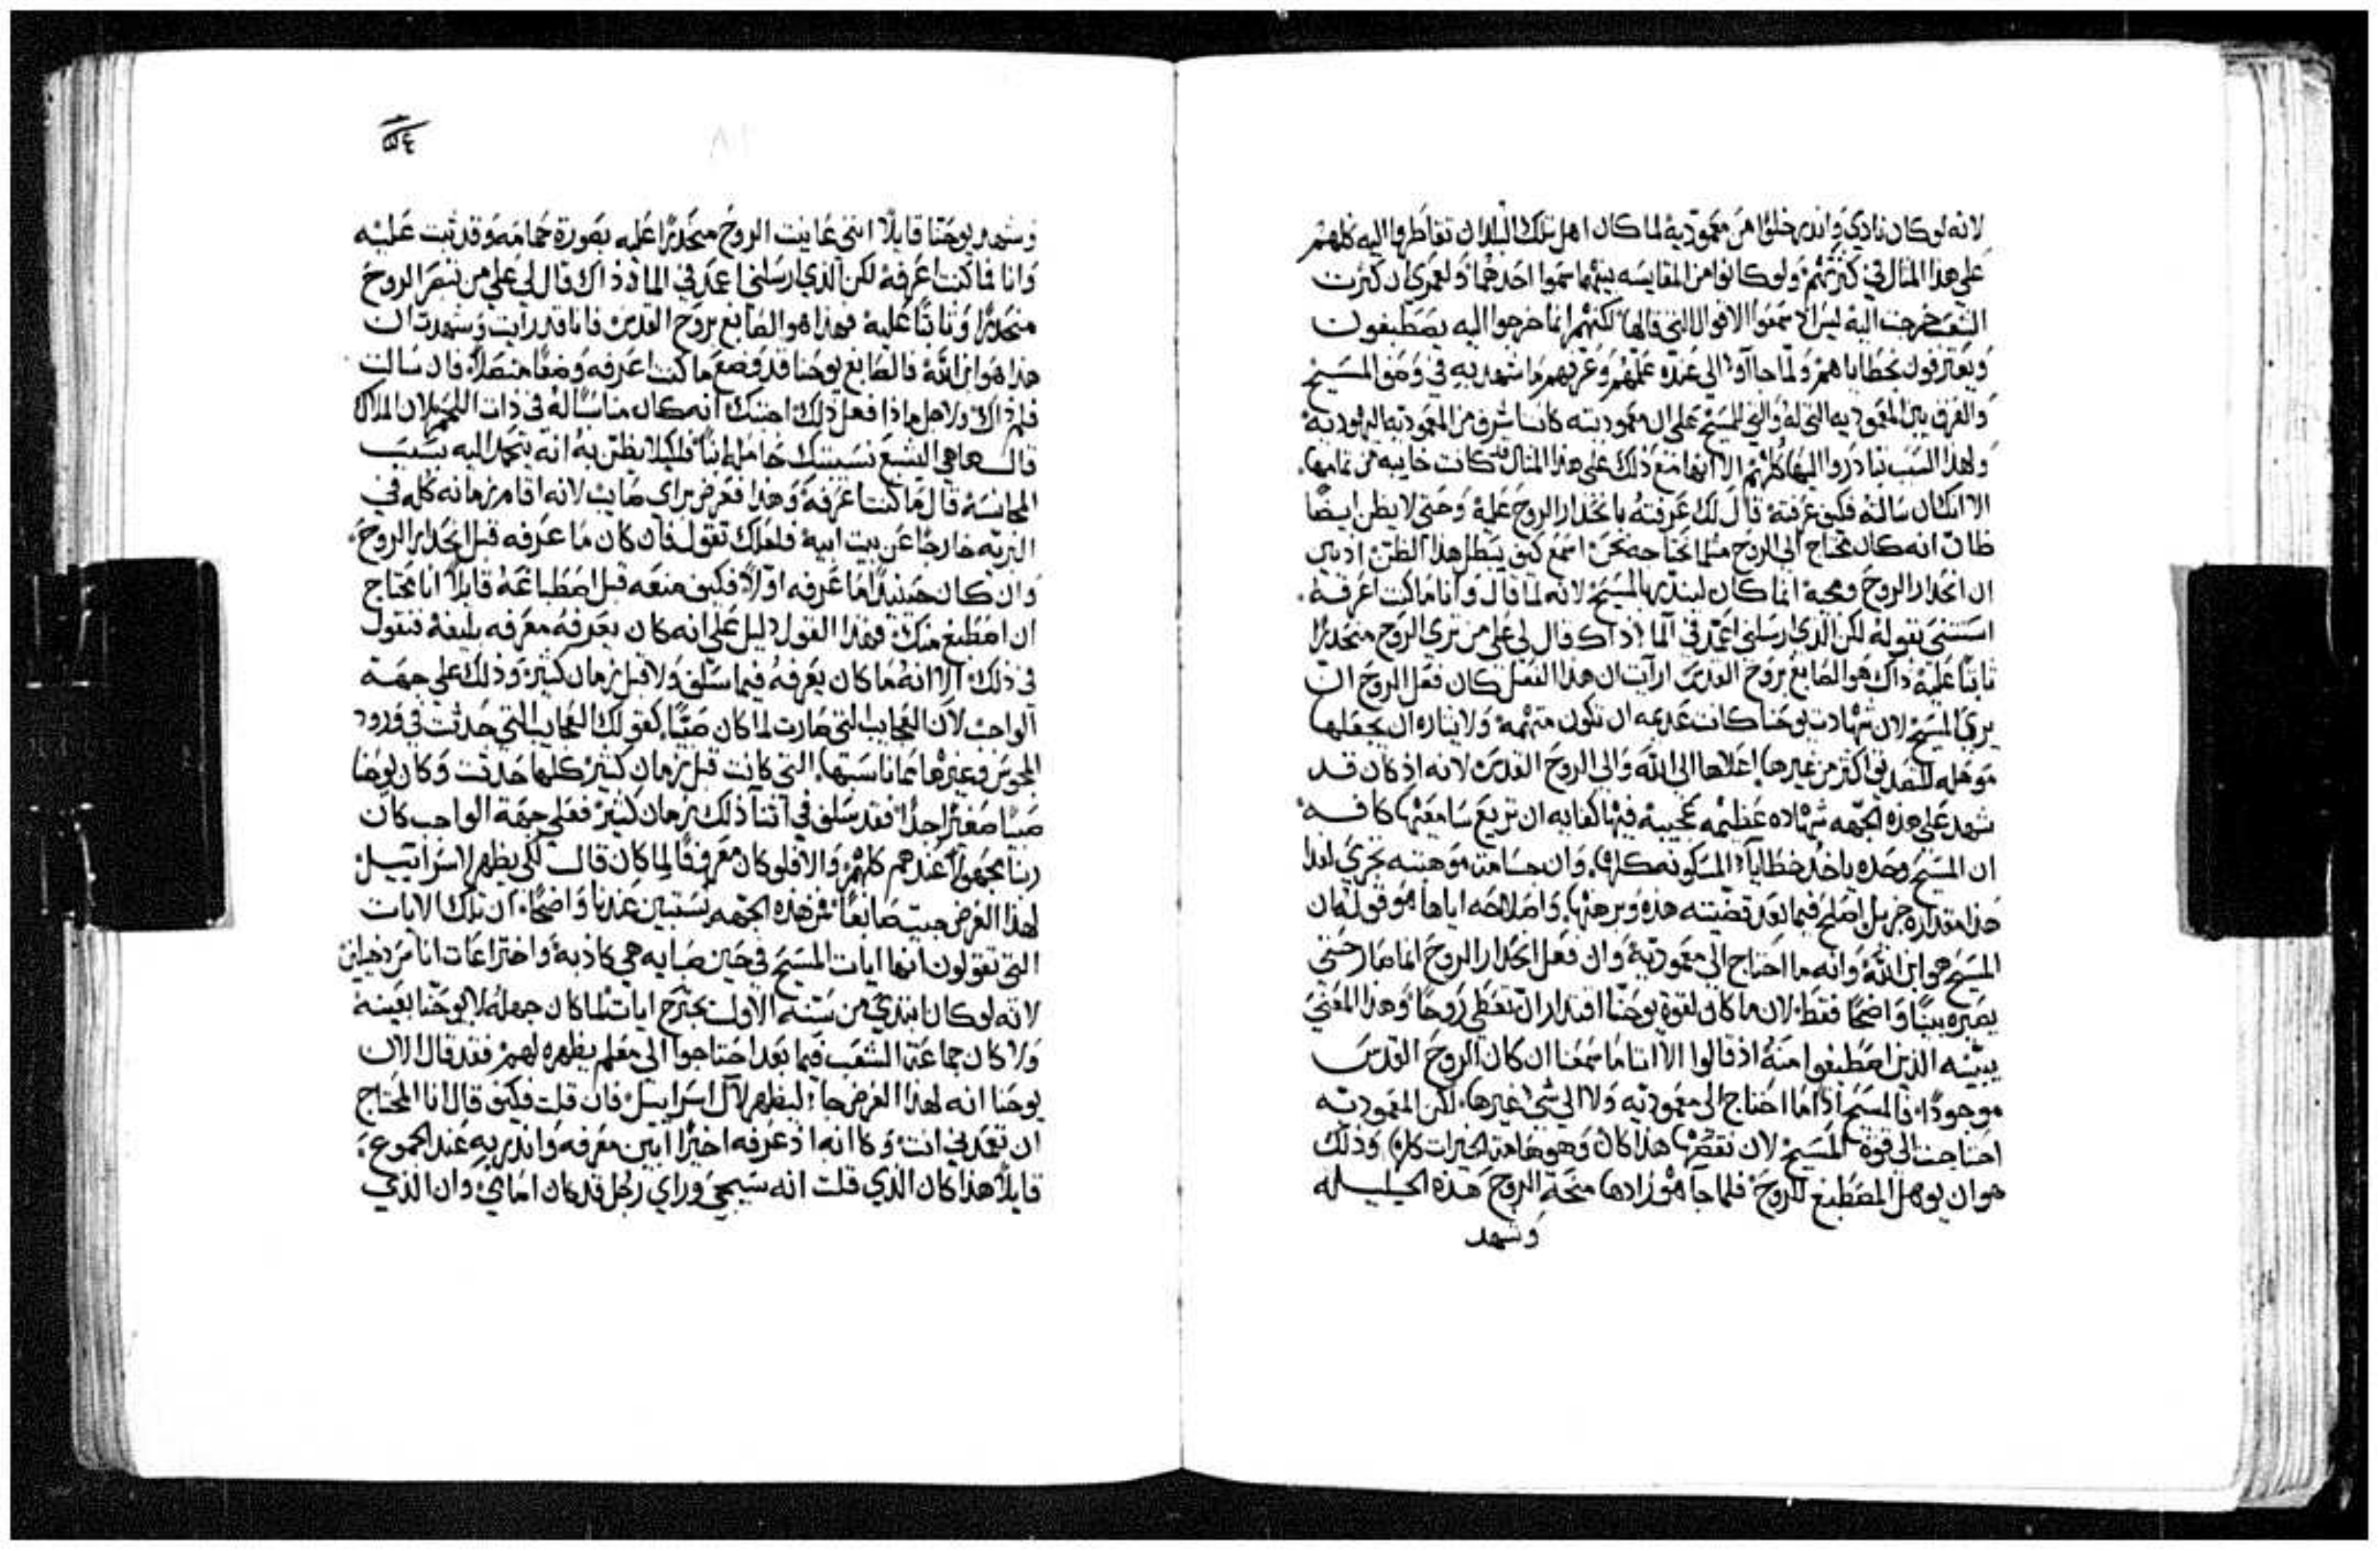 لانه لوكان نادي وانذر خلوًا من معمودية لما كان اهل تلك البلدان تقاطروا اليه كلهم
علي هذا المثال في كثرتهم ولو كانوا من المقايسه بينهما سموا احدهما ولعمري ان كثرت
الشعب خرجت اليه ليس لاستمعوا الاقوال التي قالها لكنهم انما خرجوا اليه يصطبغون
ويعترفون بخطاياهم ولما جاآوا الي عنده علمهم وعرفهم ما شهد به في وصف المسيح
والفرق بين المعموديه التي له والتي للمسيح علي ان معموديته كانت اشرف من المعموديه اليهوديه
ولهذا السبب تبادروا اليها كلهم الا انها مع ذلك علي هذا المثال كانت خايبه من تمامها
الا انك ان سالته فكيف عرفته قال لك عرفته بانحدار الروح عليه وحتي لا يظن ايضًا
ظان انه كان محتاج الي الروح مثلما نحتاجه نحن اسمع كيف يبطل هذا الظن اذ بين
ان انحدار الروح ومجيه انما كان لينذر بالمسيح لانه لما قال وانا ما كنت اعرفه
استثني بقوله لكن الذي ارسلني اعمد في الما ذاك قال لي علي من تري الروح منحدرًا
ثابتًا عليه ذاك هو الصابغ بروح القدس ارايت ان هذا الفعل كان فعل الروح ان
يري المسيح لان شهادت يوحنا كانت عديمه ان تكون متهمه ولايثاره ان يجعلها
موهله للتصديق اكثر من غيرها اعلاها الي الله والي الروح القدس لانه اذ كان قد
شهد علي هذه الجهه شهاده عظيمه عجيبه فيها كفايه ان تريع سامعيها كافه
ان المسيح وحده ياخذ خطايا المسكونه كلها وان جسامة موهبته تجزي لفدا
هذا مقداره جزيل اصلح فيما بعد قضيته هذه وبرهنها واصلاحه اياها هو قوله ان
المسيح هو ابن الله وانه ما احتاج الي معمودية وان فعل انحدار الروح انما صار حتي
يصيره بينًا واضحًا فقط لان ما كان لقوة يوحنا اقتدار ان تعطي روحًا وهذا المعني
يبينه الذين اصطبغوا منه اذ قالوا الا اننا ما سمعنا ان كان الروح القدس
موجودًا فالمسيح اذًا ما احتاج الي معموديه ولا الي شي غيرها لكن المعموديه
احتاجت الي قوة المسيح لان نقصها هذا كان وهو هامة الخيرات كلها وذلك
هو ان يوهل المصطبغ للروح فلما جا هو زادها منحة الروح هذه الجليله
وشهد
٥٤
وشهد يوحنا قايلًا انني عاينت الروح منحدرًا عليه بصورة حمامه وقد ثبت عليه
وانا فما كنت اعرفه لكن الذي ارسلني اعمد في الما ذاك قال لي علي من تبصر الروح
منحدرًا وثابتًا عليه فهذا هو الصابغ بروح القدس فانا قد رايت وشهدت ان
هذا هو ابن الله فالصابغ يوحنا قد وضع ما كنت اعرفه وضعًا متصلًا فان سالت
فلم ذاك ولاجل ماذا فعل ذلك اجبتك انه كان مناسبًا له في ذات اللحم لان الملاك
قال ها هي اليشبع نسيبتك حاملًا ابنًا فلكيلا يظن به انه يتجمل اليه بسبب
المجانسه قال ما كنت اعرفه وهذا فعرض براي صايب لانه اقام زمانه كله في
البريه خارجًا عن بيت ابيه فلعلك تقول فان كان ما عرفه قبل انحدار الروح
وان كان حينيذٍ ما عرفه اولًا فكيف منعه قبل اصطباغه قايلًا انا محتاج
ان اصطبغ منك فهذا القول دليل علي انه كان يعرفه معرفه بليغه فنقول
في ذلك الا انه ما كان يعرفه فيما سلف ولا قبل زمان كثير وذلك علي جهة
الواجب لان العجايب التي صارت لما كان صبيًا كقولك العجايب التي حدثت في ورود
المجوس وغيرها مما ناسبتها التي كانت قبل زمان كثير كلها حدثت وكان يوحنا
صبيًا صغيرًا جدًا فقد سلف في اثنا ذلك زمان كثير فعلي جهة الواجب كان
ربنا مجهولًا عندهم كلهم والا فلو كان معروفًا لما كان قال لكي يظهر لاسراييل
لهذا الغرض جيت صابغًا فمن هذه الجهه يستبين عندنا واضحًا ان تلك الايات
التي تقولون انها ايات المسيح في حين صبايه هي كاذبة واختراعات اناس دخيلين
لانه لو كان ابتدي من سنه الاولي يجترح ايات لما كان جهله لا يوحنا بعينه
ولا كان جماعة الشعب فيما بعد احتاجوا الي معلم يظهره لهم فقد قال الان
يوحنا انه لهذا الغرض جا ليظهر لال اسراييل فان قلت فكيف قال انا المحتاج
ان تعمدني انت وكما انه اذ عرفه اخيرًا ابين معرفه وانذر به عند الجموع
قايلًا هذا كان الذي قلت انه سيجي وراي رجل قد كان امامي وان الذي